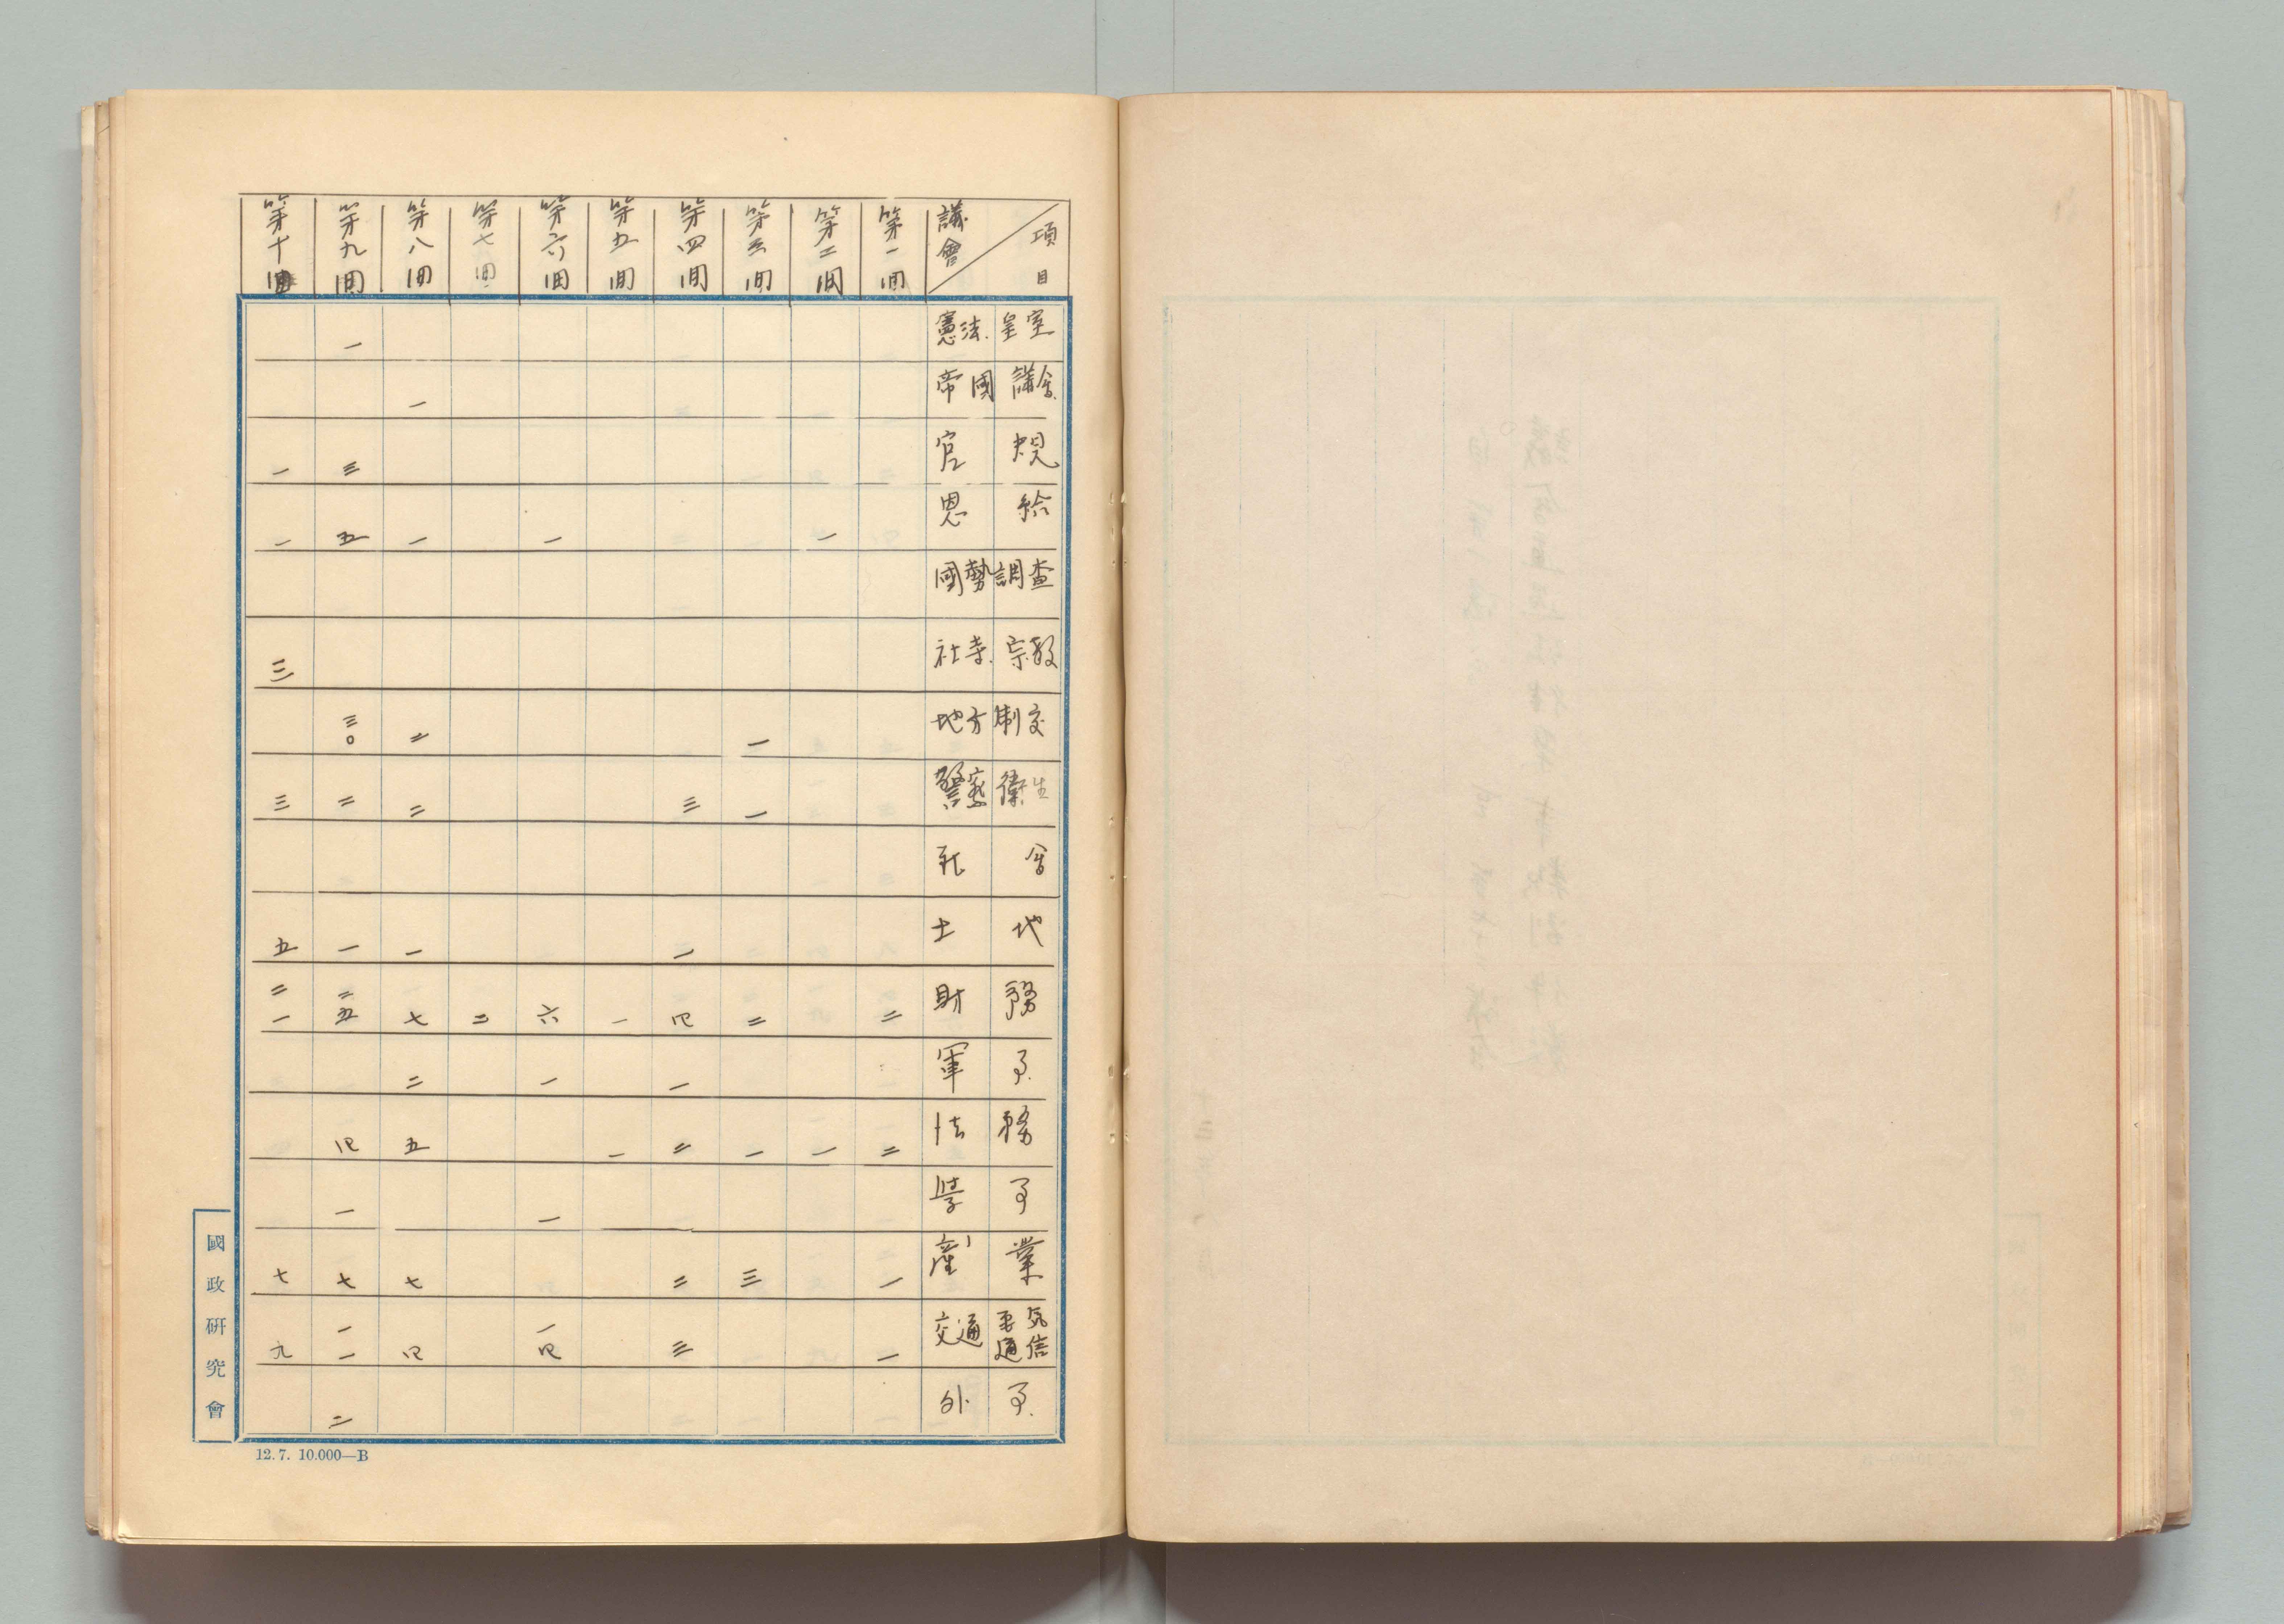 項目
議會
憲法.皇室
帝國議会
官規
恩給
國勢調査
社寺.宗教
地方制度
警察衛生
社会
土地
財務
軍事
法務
学事
産業
交通電気通信
外事
第一回 二 二 一 一
第二回 一 一
第三回 一 一 二 一 三
第四回 三 一 四 一 二 二 三
第五回 一 一
第六回 一 六 一 一 一四
第七回 二
第八回 一 一 二 二 一 七 二 五 七 四
第九回 一 三 五 三〇 二 一 二五 四 一 七 一一 二
第十回 一 一 三 三 五 二一 七 九
國政研究會
12.7. 10.000—B